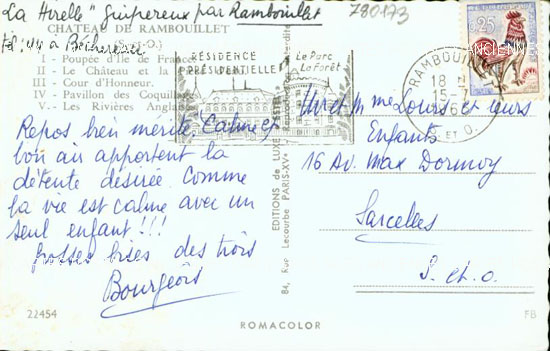 "La Hurelle" Guipereux par Rambouillet
780173
CHATEAU DE RAMBOUILLET
Tél: 44 à Bécherencé
I - Poupée d'Ile de France
II - Le Château et la
III - Cour d'Honneur.
IV - Pavillon des Coquillages
V - Les Rivières Anglaises
RÉSIDENCE
PRÉSIDENTIELLE
Le Parc
La Forêt
RAMBOUILLET
18 H
15-7
196
S. ET O.
25
Repos bien mérité. Calme et
bon air apportent la
détente désirée. Comme
la vie est calme avec un
seul enfant!!!
grosses bises des trois
Bourgeois
EDITIONS de LUXE "ESTEL"
84, Rue Lecourbe PARIS-XVe
Mr et Mme Louis et leurs
Enfants
16 Av. Max Dormoy
Sarcelles
S. et O.
22454
ROMACOLOR
FB